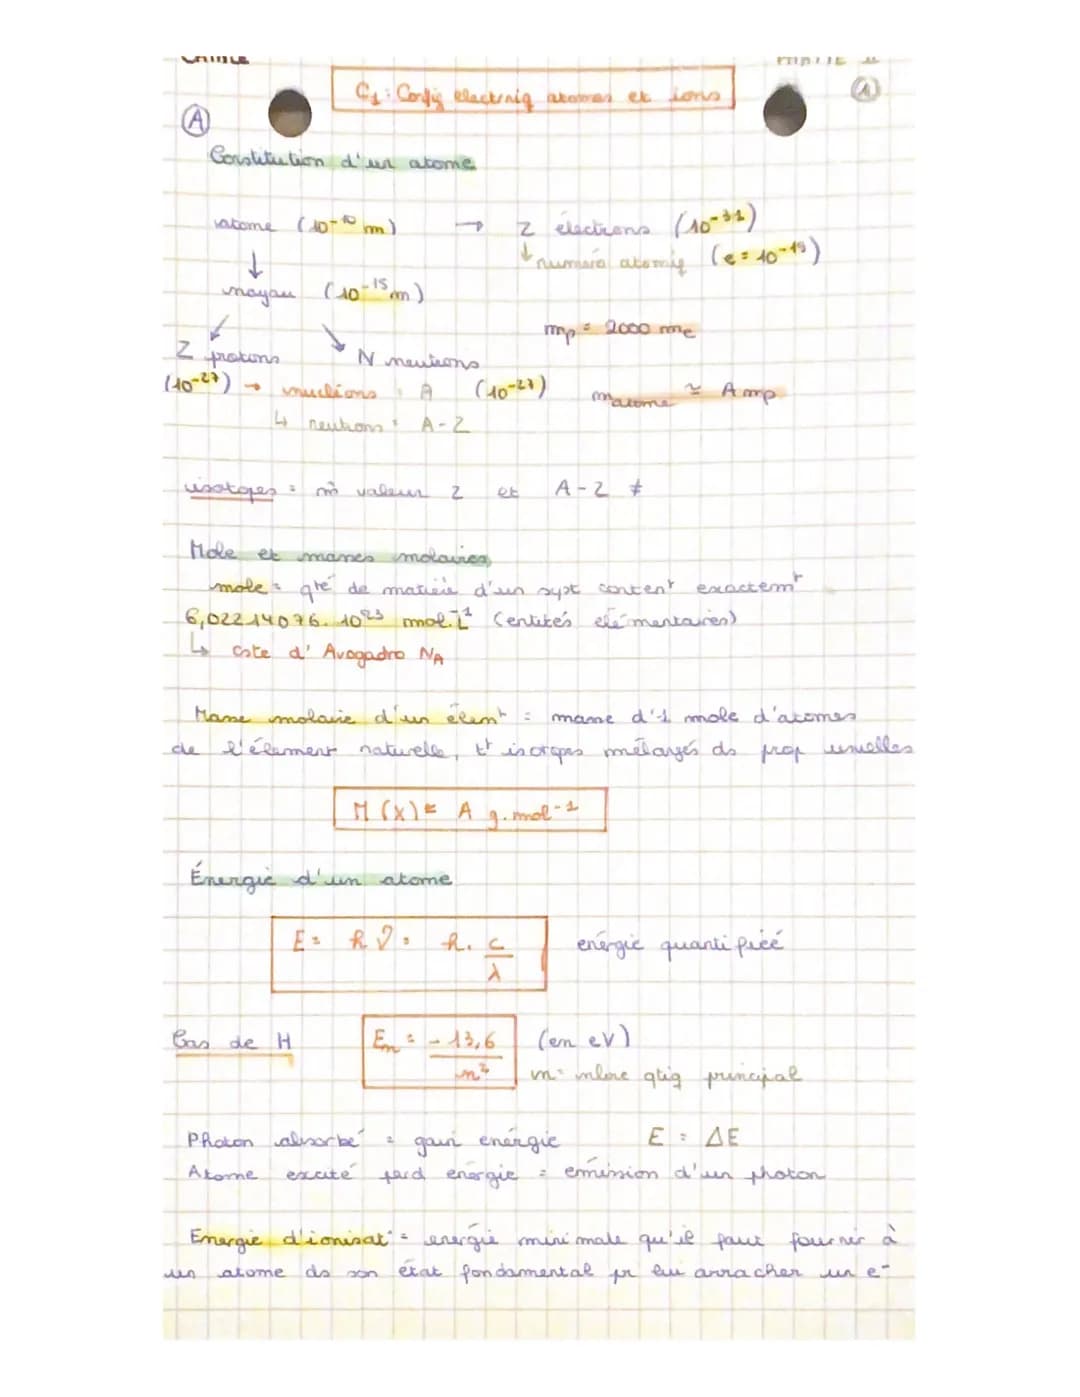 C1 : Config électroniq atomes et ions
1
A
Constitution d'un atome
atome (10-10 m) → Z électrons (10-31)
↓ ↓ numéro atomiq (e = 10-19)
noyau (10-15 m)
mp = 2000 me
Z protons N neutrons
(10-27) → nucléons : A (10-27) matome ≃ A mp
↳ neutrons : A-Z
isotopes = m̂ valeur Z et A-Z ≠
Mole et masses molaires
mole = qté de matière d'un syst content exactemt
6,02214076. 10²³ mol.L-1 (entités élémentaires)
↳ cste d'Avogadro NA
Masse molaire d'un élémt = masse d'1 mole d'atomes
de l'élément naturelle, tt isotopes mélangés ds prop usuelles
M (X) = A g.mol-1
Énergie d'un atome
E = h ν = h. c/λ énergie quantifiée
Cas de H En = - 13,6/n² (en eV)
n = nbre qtiq principal
Photon absorbé = gain énergie E = ΔE
Atome excité perd énergie = émission d'un photon
Energie d'ionisat° = énergie minimale qu'il faut fournir à
un atome ds son état fondamental pr lui arracher un e-